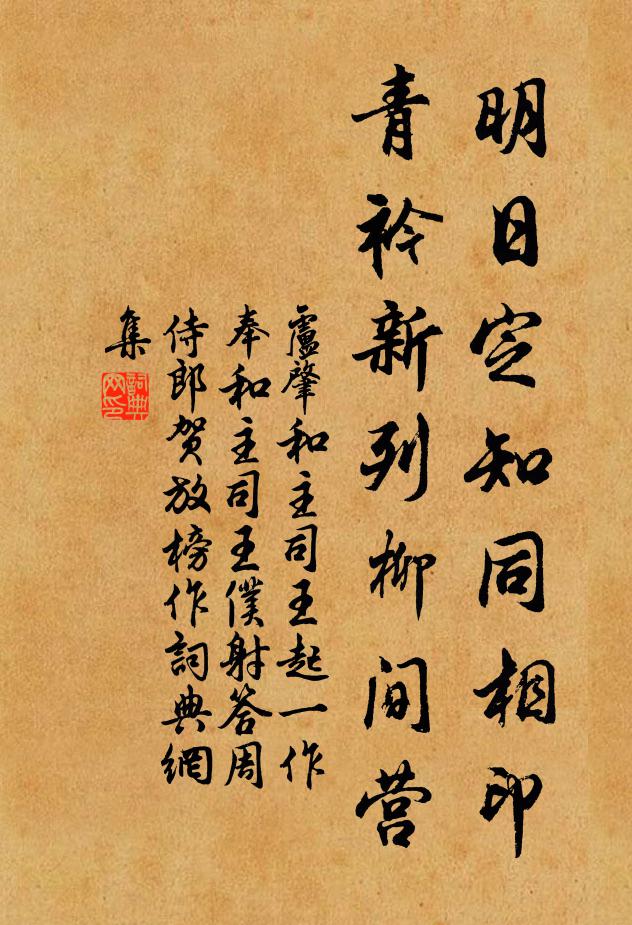 明日定知同相印
青衿新列柳间营
盧肇和主司王起一作
奉和主司王僕射答周
侍郎贺放榜作詞典網
集
詞典
网印